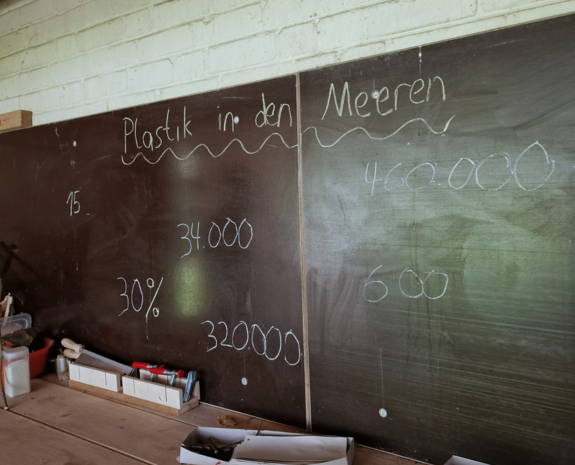 Plastik in den Meeren
460.000
15
34.000
600
30%
320000